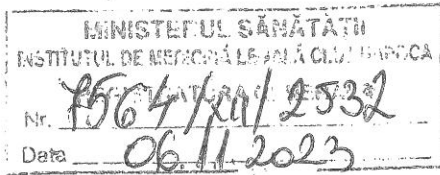 MINISTERUL SĂNĂTĂȚII
INSTITUTUL DE MEDICINĂ LEGALĂ CLUJ-NAPOCA
Nr. 7564/ /2532
Data 06.11.2023